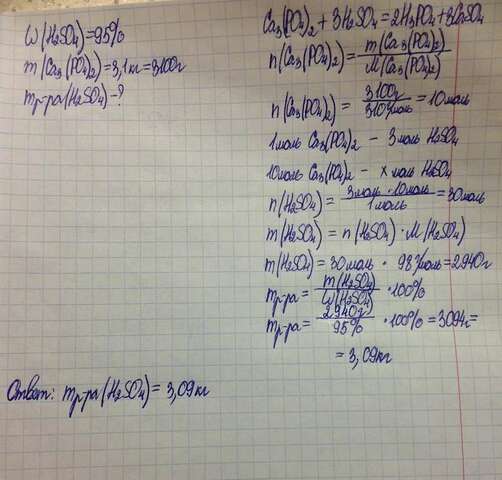 W(H₂SO₄)=95%
m(Ca₃(PO₄)₂)=3,1кг=3100г
mр-ра(H₂SO₄)-?
Ca₃(PO₄)₂+3H₂SO₄=2H₃PO₄+3CaSO₄
n(Ca₃(PO₄)₂)=m(Ca₃(PO₄)₂)/M(Ca₃(PO₄)₂)
n(Ca₃(PO₄)₂)=3100г/310г/моль=10моль
1моль Ca₃(PO₄)₂ - 3моль H₂SO₄
10моль Ca₃(PO₄)₂ - x моль H₂SO₄
n(H₂SO₄)=3моль·10моль/1моль=30моль
m(H₂SO₄)=n(H₂SO₄)·M(H₂SO₄)
m(H₂SO₄)=30моль·98г/моль=2940г
mр-ра=m(H₂SO₄)/W(H₂SO₄)·100%
mр-ра=2940г/95%·100%=3094г=
=3,09кг
Ответ: mр-ра(H₂SO₄)=3,09кг